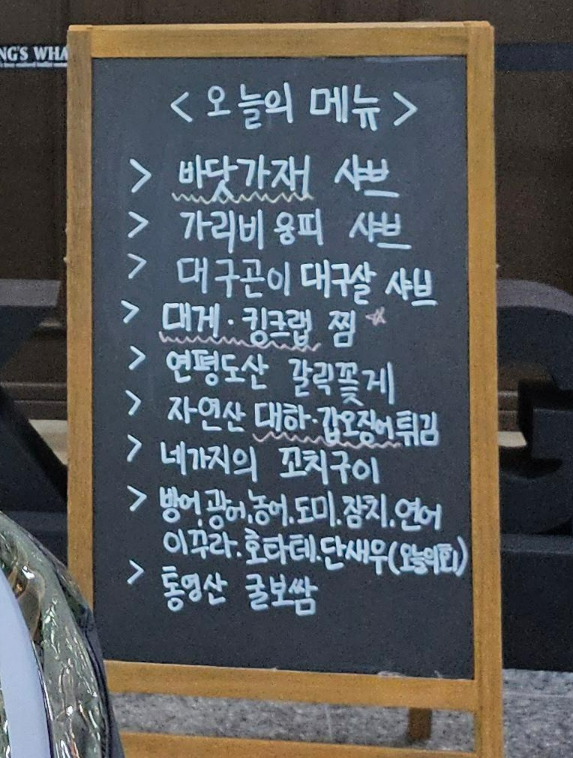 NG'S WHA
< 오늘의 메뉴 >
> 바닷가재 샤브
> 가리비 용피 샤브
> 대구곤이 대구살 샤브
> 대게·킹크랩 찜 ☆
> 연평도산 갈릭꽃게
> 자연산 대하·갑오징어튀김
> 네가지의 꼬치구이
> 방어.광어.농어.도미.참치.연어
이꾸라.호타테.단새우(오늘의회)
> 통영산 굴보쌈